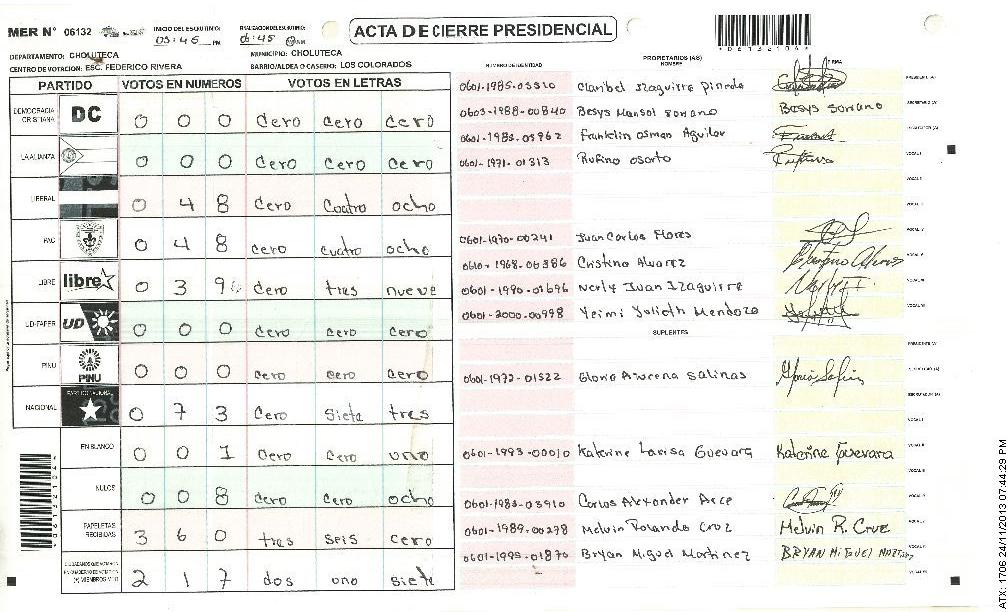 MER N° 06132
INICIO DEL ESCRUTINIO:
05:45 PM
FINALIZACION DEL ESCRUTINIO:
06:45
ACTA DE CIERRE PRESIDENCIAL
DEPARTAMENTO: CHOLUTECA
MUNICIPIO: CHOLUTECA
CENTRO DE VOTACION: ESC. FEDERICO RIVERA
BARRIO/ALDEA O CASERIO: LOS COLORADOS
PARTIDO VOTOS EN NUMEROS VOTOS EN LETRAS
DEMOCRACIA CRISTIANA DC 0 0 0 Cero Cero Cero
LA ALIANZA 0 0 0 Cero Cero Cero
LIBERAL 0 4 8 Cero Cuatro ocho
PAC 0 4 8 Cero Cuatro ocho
LIBRE libre 0 3 9 Cero tres nueve
UD-FAPER UD 0 0 0 Cero Cero Cero
PINU PINU 0 0 0 Cero Cero Cero
NACIONAL 0 7 3 Cero Siete tres
EN BLANCO 0 0 1 Cero Cero uno
NULOS 0 0 8 Cero Cero ocho
PAPELETAS RECIBIDAS 3 6 0 tres seis cero
2 1 7 dos uno siete
NUMERO DE IDENTIDAD PROPIETARIOS (AS) NOMBRE FIRMA
0601-1985-03310 Claribel Izaguirre Pineda
0603-1988-00840 Besys Marisol Soriano Besys Soriano
0601-1983-03962 Franklin Osman Aguilar
0601-1971-01313 Rufino Osorto
0601-1970-00241 Juan Carlos Flores
0610-1968-00386 Cristina Alvarez
0601-1990-01696 Nerly Juan Izaguirre
0601-2000-00998 Yeimi Yolieth Mendoza
SUPLENTES
0601-1972-01522 Gloria Azucena Salinas
0601-1993-00010 Katerine Larisa Guevara Katerine Guevara
0601-1983-03910 Carlos Alexander Arce
0601-1989-00278 Melvin Rolando Cruz Melvin R. Cruz
0601-1995-01870 Bryan Miguel Martinez BRYAN MIGUEL
ATX: 1706 24/11/2013 07:44:29 PM